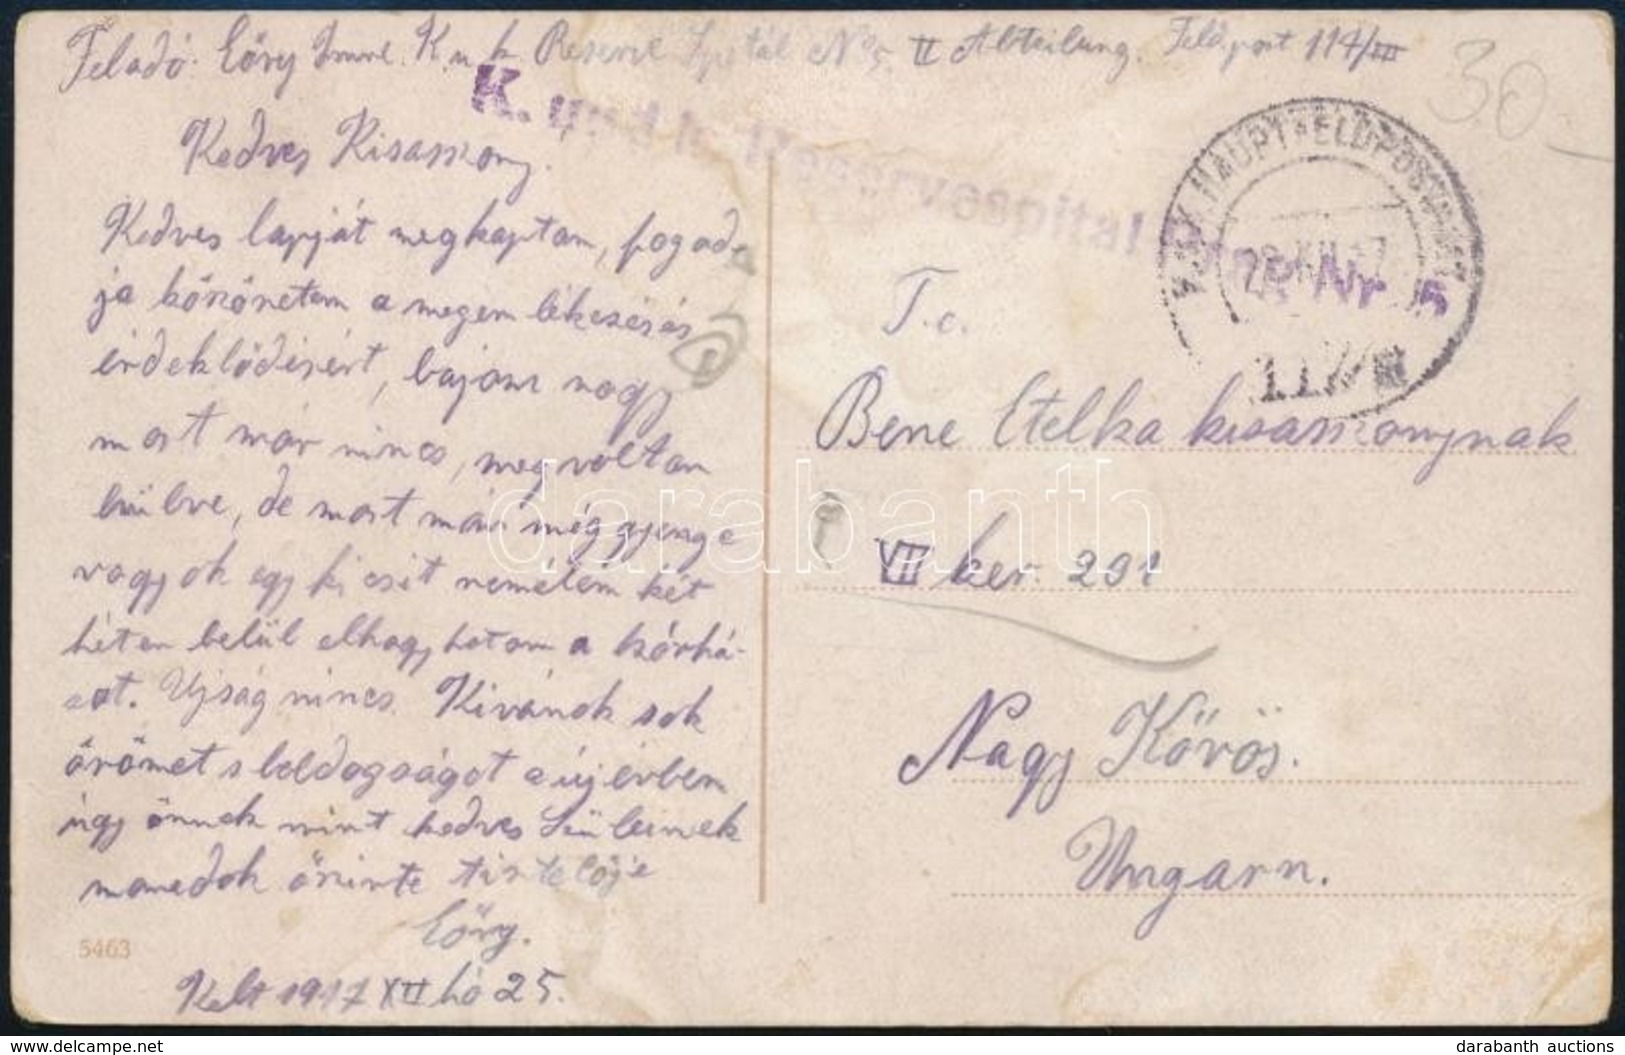 Feladó: Cőry Imre. K. u. k. Reserve Spitál No 5 II Abteilung. Feldpost 117/III
30
K. und k. Reservespital Nr. 5
K.u.K. HAUPTFELDPOSTAMT
28.XII.17
117/III
Kedves Kisasszony.
Kedves lapját megkaptam, fogad-
ja köszönetem a megemlékezés és
érdeklődésért, bajom nagy
most már nincs, meg voltam
hülve, de most már még gyenge
vagyok egy kicsit remélem két
héten belül elhagyhatom a kórhá-
zat. Ujság nincs. Kivánok sok
örömet s boldogságot a új évben
úgy önnek mint kedves Szüleinek
maradok őszinte tisztelője
Cőry.
Kelt 1917 XII hó 25.
5463
T. c.
Bene Etelka kisasszonynak
VII ker. 291
Nagy Kőrös.
Ungarn.
darabanth
www.delcampe.net
darabanth auctions